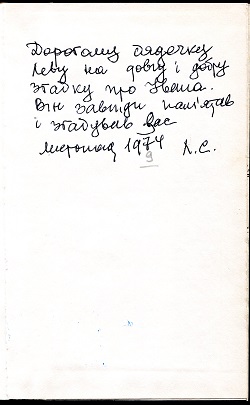 Дорогому дядечку
Леву на довгу і добру
згадку про Івана.
Він завжди пам'ятав
і згадував Вас
листопад 1974 Л.С.
9